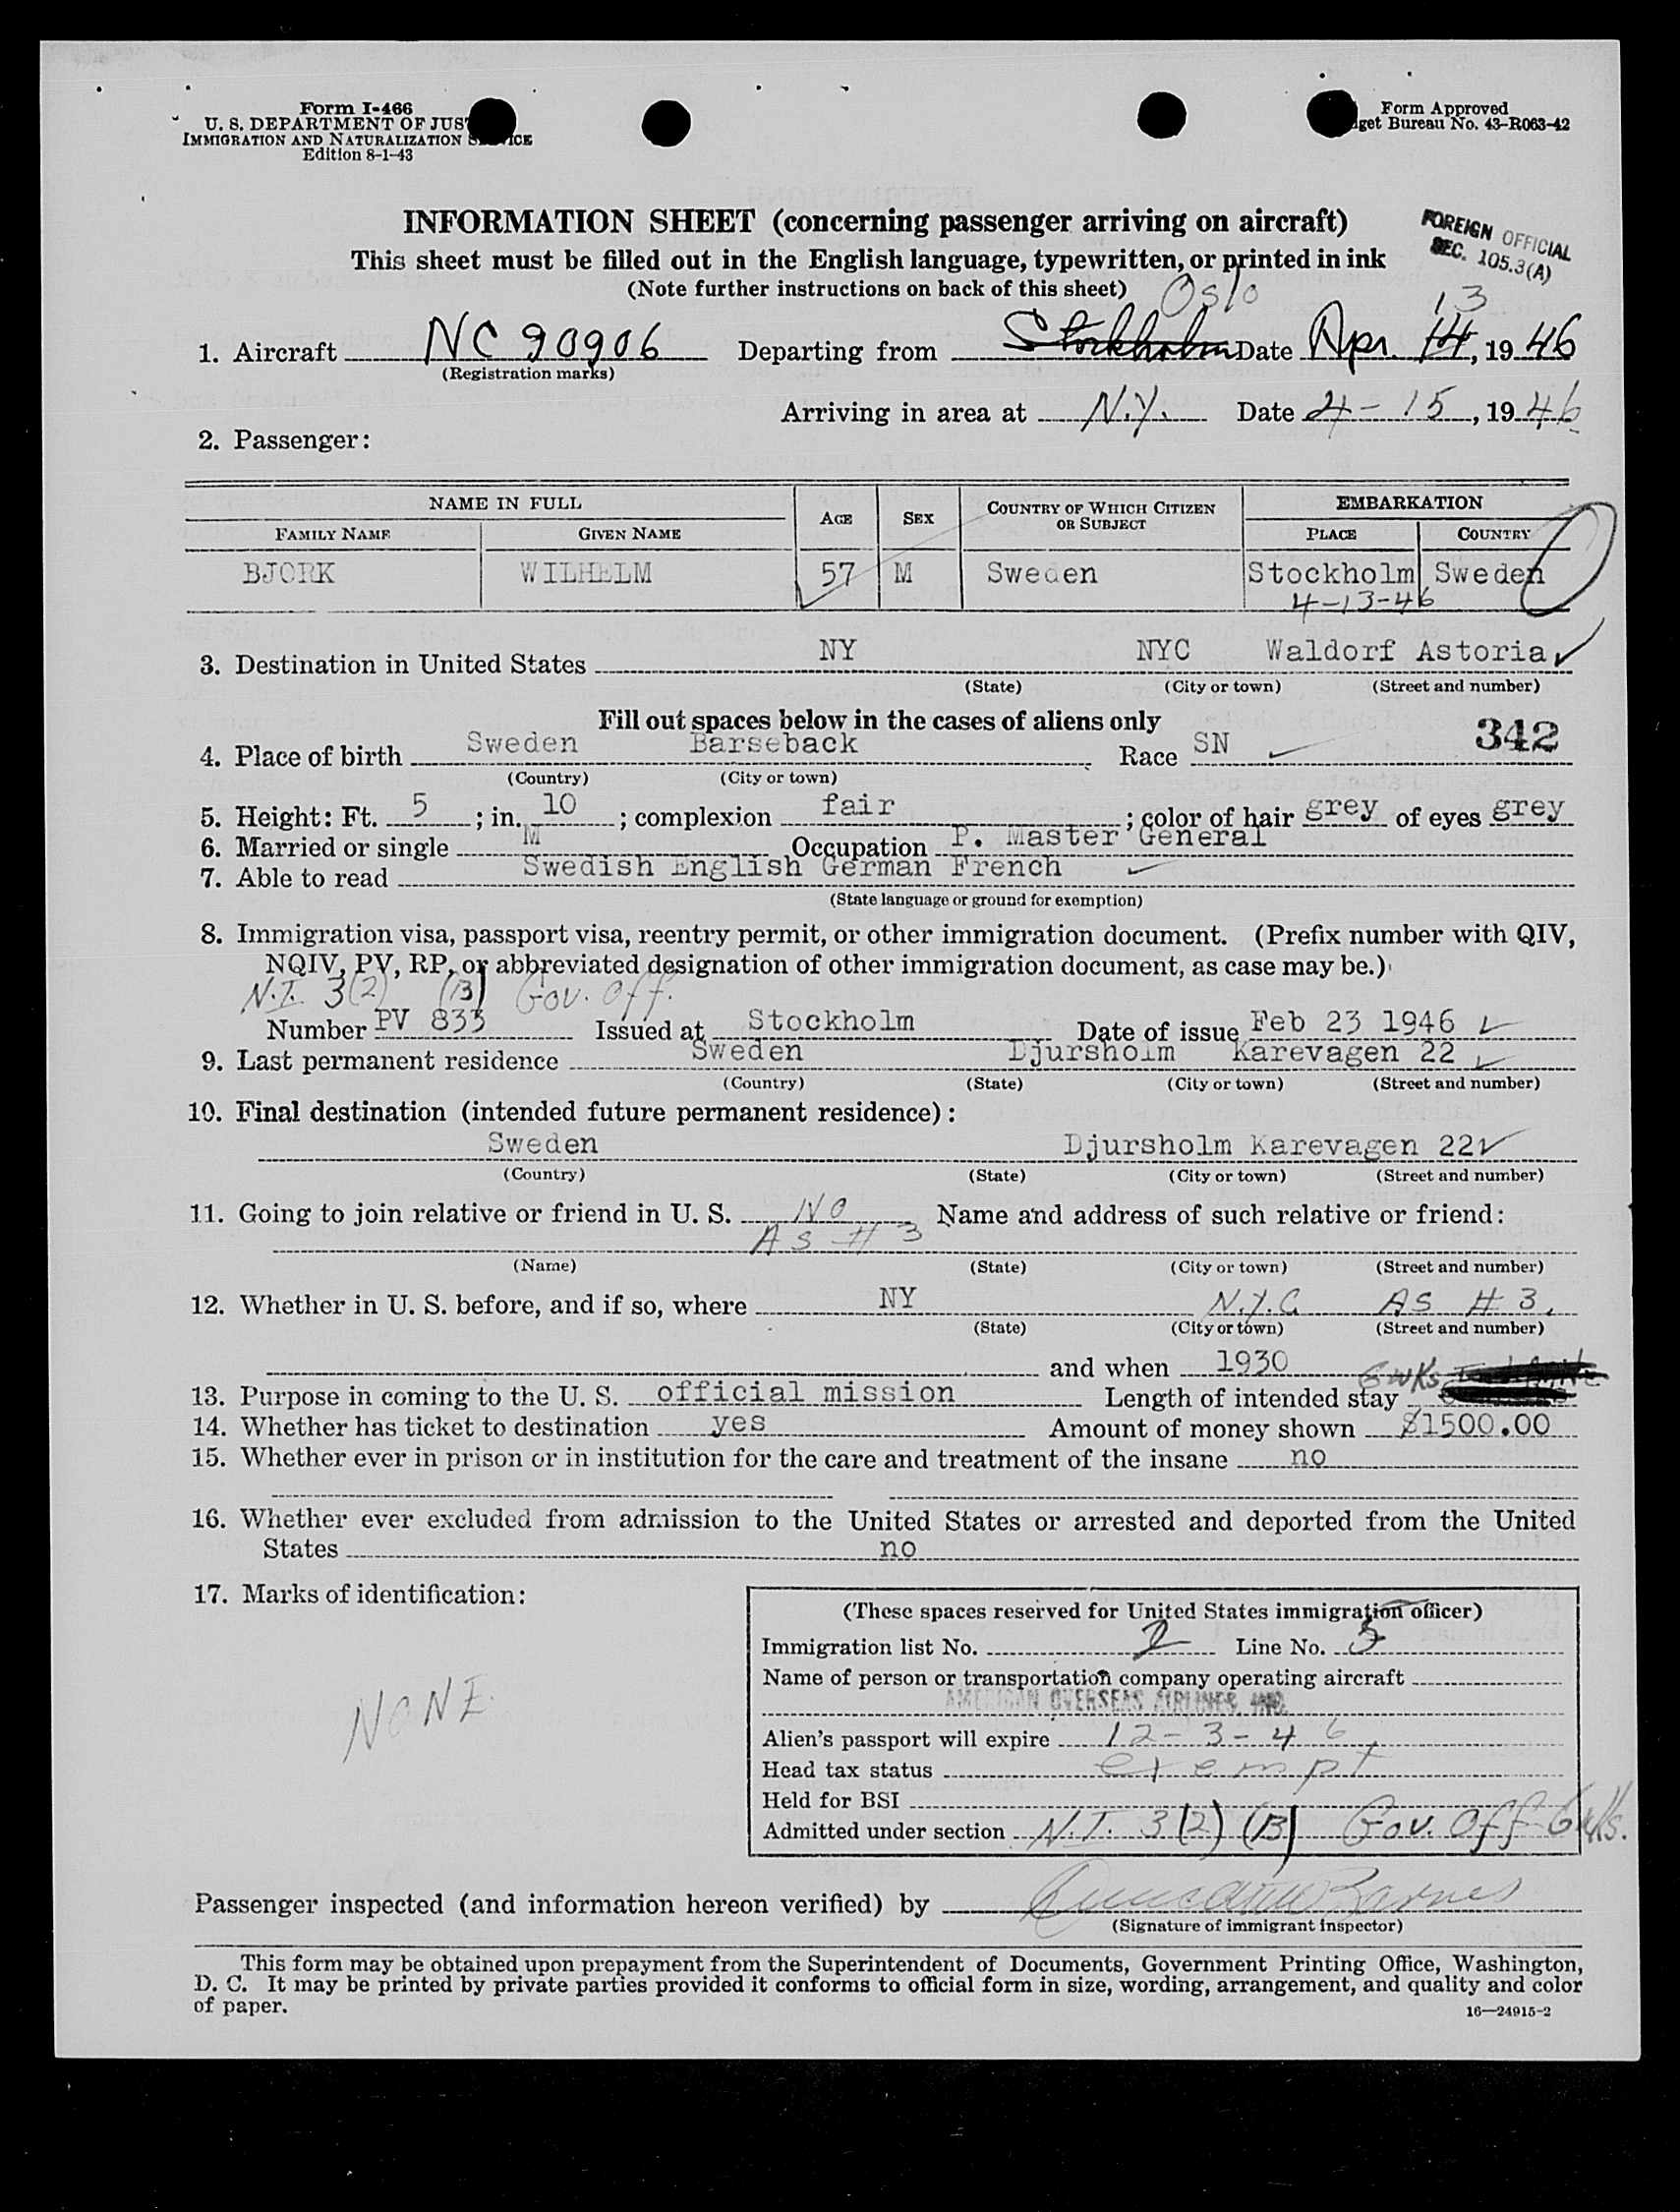 Form I-466
U. S. DEPARTMENT OF JUS
IMMIGRATION AND NATURALIZATION S ICE
Edition 8-1-43
Form Approved
get Bureau No. 43-R063-42
INFORMATION SHEET (concerning passenger arriving on aircraft)
This sheet must be filled out in the English language, typewritten, or printed in ink
(Note further instructions on back of this sheet)
FOREIGN OFFICIAL
SEC. 105.3(A)
Oslo 13
1. Aircraft NC 90906 Departing from Stockholm Date Apr. 14, 19 46
(Registration marks)
Arriving in area at N.Y. Date 4-15, 19 46
2. Passenger:
NAME IN FULL AGE SEX COUNTRY OF WHICH CITIZEN OR SUBJECT EMBARKATION
FAMILY NAME GIVEN NAME PLACE COUNTRY
BJORK WILHELM 57 M Sweden Stockholm Sweden
4-13-46
3. Destination in United States NY NYC Waldorf Astoria
(State) (City or town) (Street and number)
Fill out spaces below in the cases of aliens only
342
4. Place of birth Sweden Barseback Race SN
(Country) (City or town)
5. Height: Ft. 5 ; in. 10 ; complexion fair ; color of hair grey of eyes grey
6. Married or single M Occupation P. Master General
7. Able to read Swedish English German French
(State language or ground for exemption)
8. Immigration visa, passport visa, reentry permit, or other immigration document. (Prefix number with QIV,
NQIV, PV, RP, or abbreviated designation of other immigration document, as case may be.)
N.I. 3(2) (B) Gov. Off.
Number PV 833 Issued at Stockholm Date of issue Feb 23 1946
9. Last permanent residence Sweden Djursholm Karevagen 22
(Country) (State) (City or town) (Street and number)
10. Final destination (intended future permanent residence):
Sweden Djursholm Karevagen 22
(Country) (State) (City or town) (Street and number)
11. Going to join relative or friend in U. S. NO Name and address of such relative or friend:
AS # 3
(Name) (State) (City or town) (Street and number)
12. Whether in U. S. before, and if so, where NY N.Y.C. AS # 3.
(State) (City or town) (Street and number)
and when 1930
13. Purpose in coming to the U. S. official mission Length of intended stay 6 wks
14. Whether has ticket to destination yes Amount of money shown $1500.00
15. Whether ever in prison or in institution for the care and treatment of the insane no
16. Whether ever excluded from admission to the United States or arrested and deported from the United
States no
17. Marks of identification:
NONE
(These spaces reserved for United States immigration officer)
Immigration list No. 2 Line No. 3
Name of person or transportation company operating aircraft
AMERICAN OVERSEAS AIRLINES, INC.
Alien's passport will expire 12-3-46
Head tax status exempt
Held for BSI
Admitted under section N.I. 3(2) (B) Gov. Off 6 wks.
Passenger inspected (and information hereon verified) by Barnes
(Signature of immigrant inspector)
This form may be obtained upon prepayment from the Superintendent of Documents, Government Printing Office, Washington,
D. C. It may be printed by private parties provided it conforms to official form in size, wording, arrangement, and quality and color
of paper.
16—24915-2